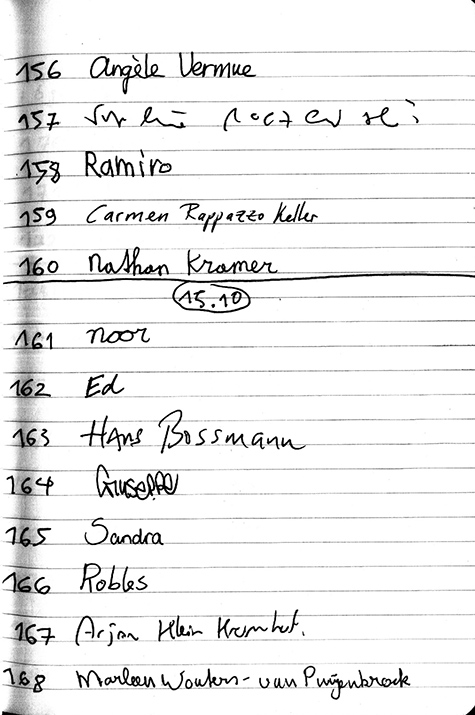 156 Angèle Vermue
157
158 Ramiro
159 Carmen Rappazzo Keller
160 Nathan Kramer
15.10
161 Noor
162 Ed
163 Hans Bossmann
164 Giuseppe
165 Sandra
166 Robles
167 Arjan Klein
168 Marleen Wouters-van